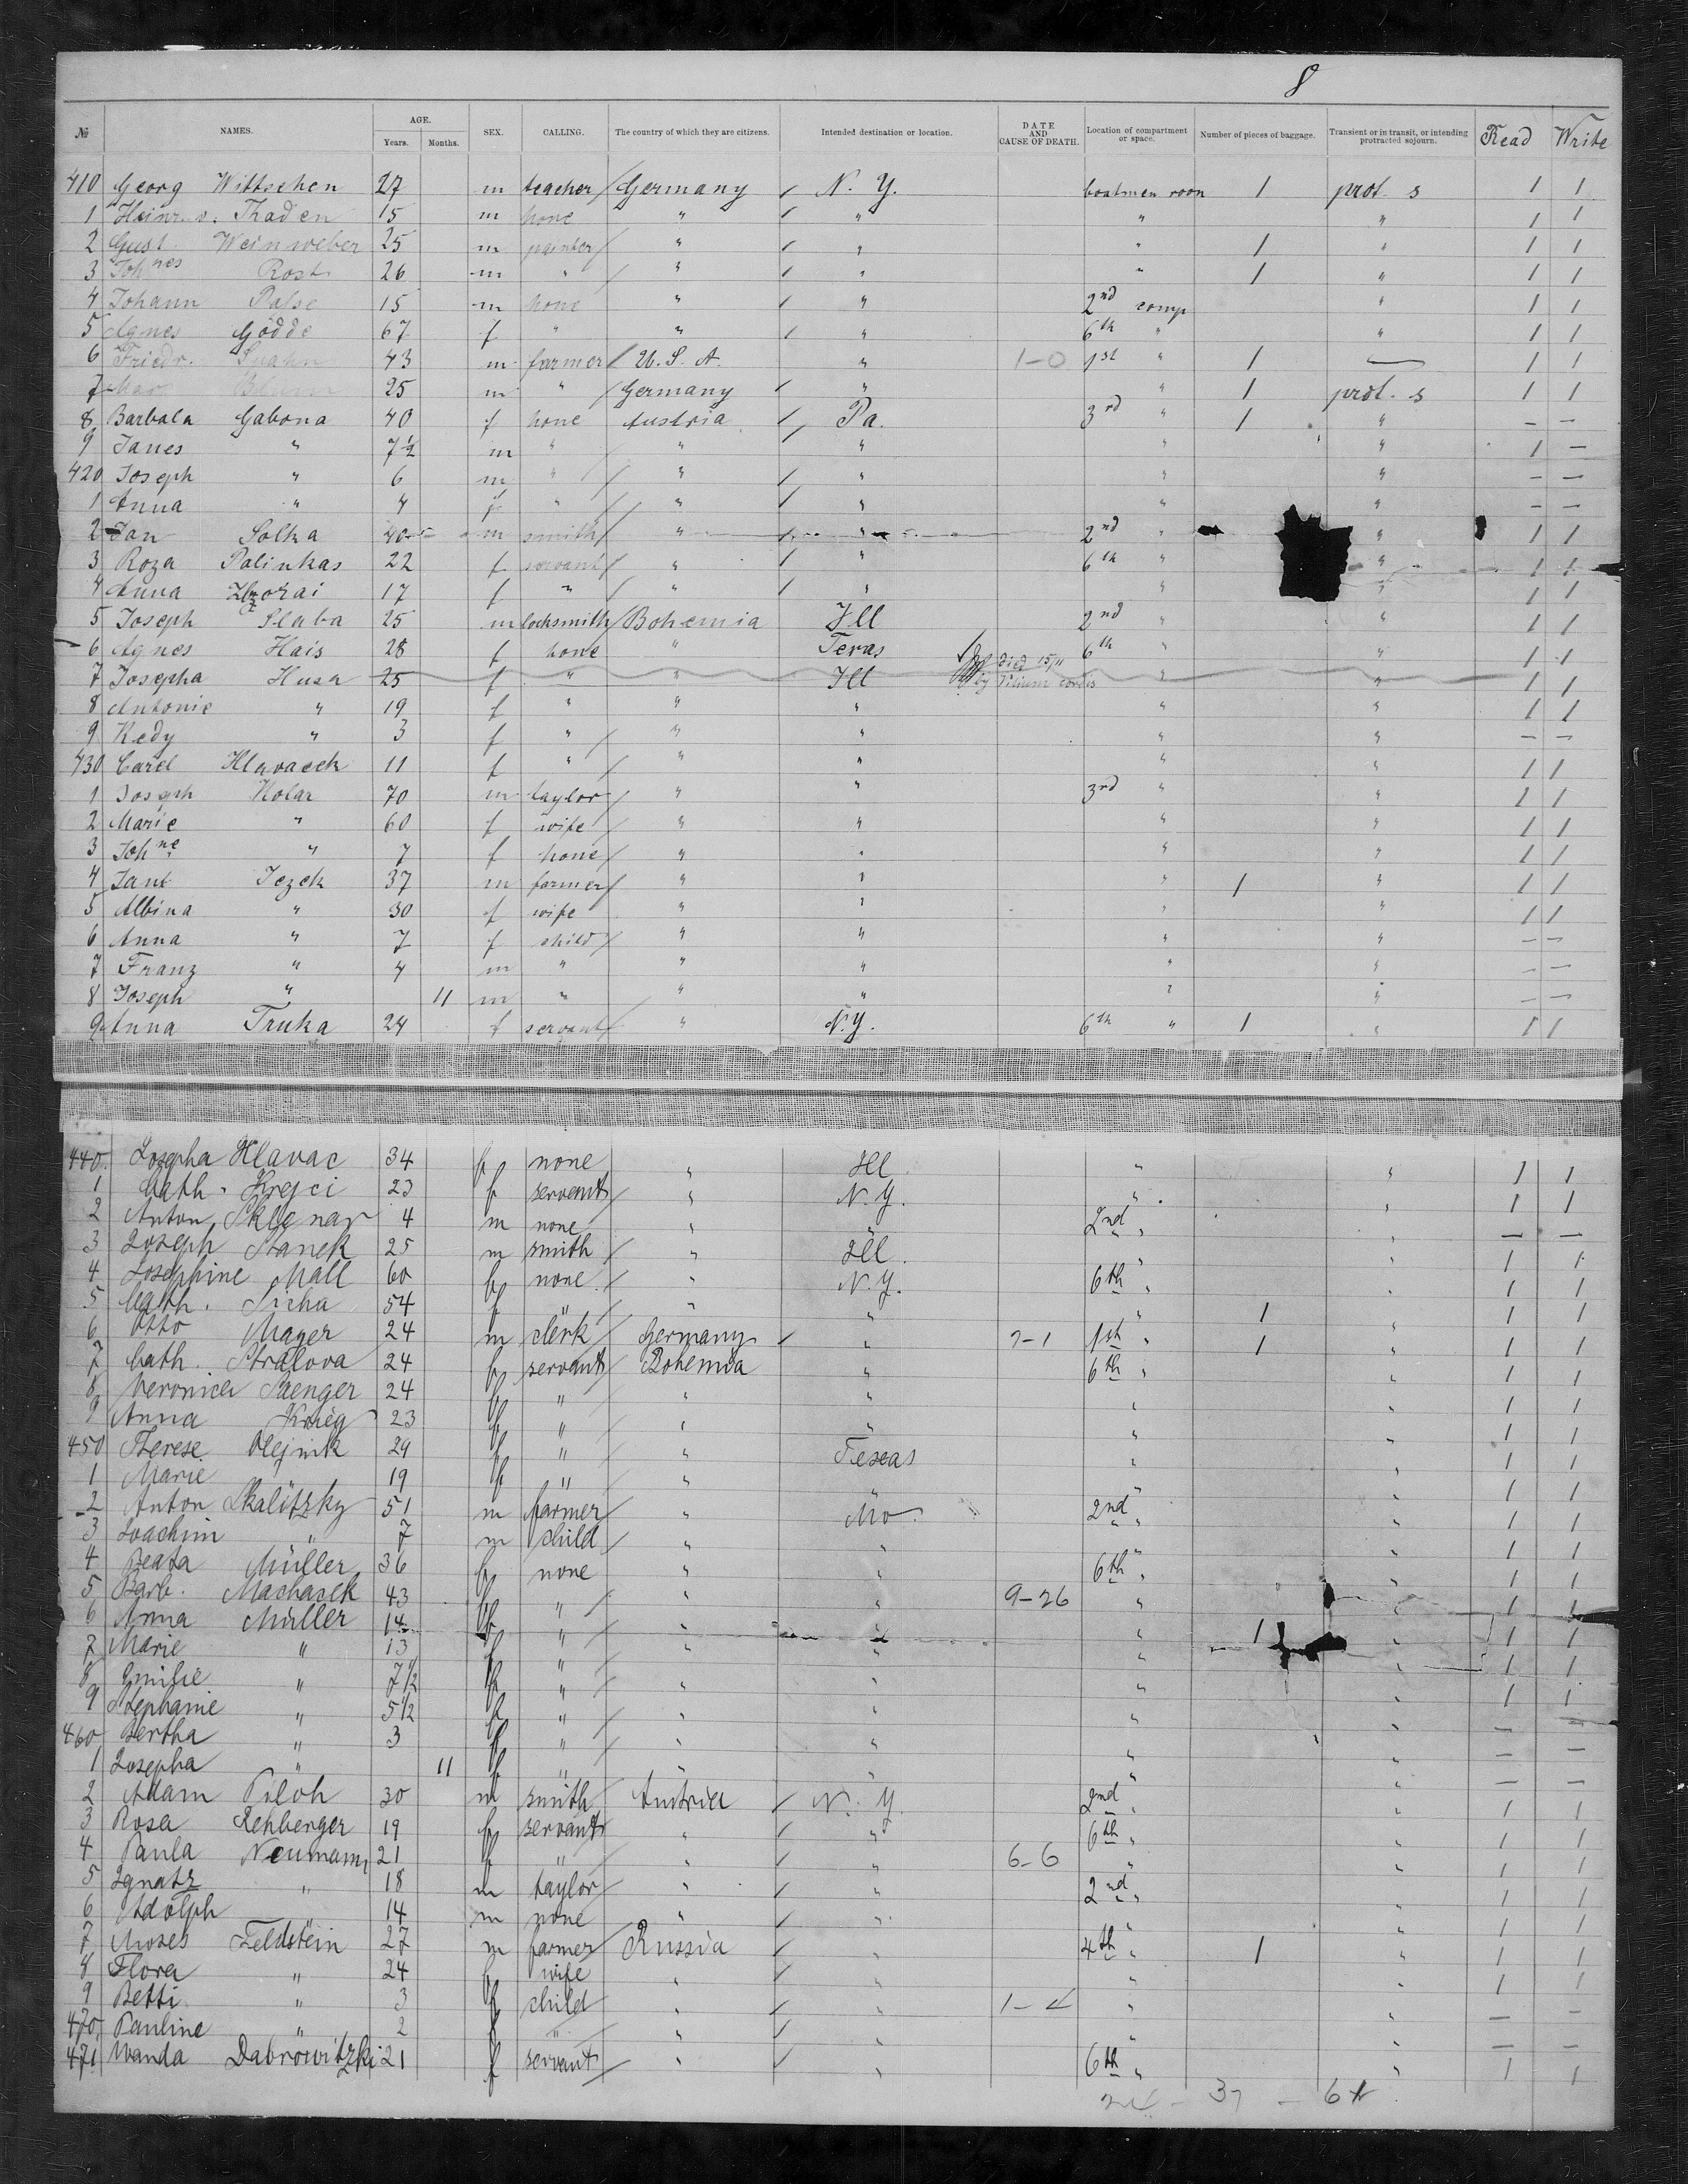 8
№ NAMES. AGE. Years. Months. SEX. CALLING. The country of which they are citizens. Intended destination or location. DATE AND CAUSE OF DEATH. Location of compartment or space. Number of pieces of baggage. Transient or in transit, or intending protracted sojourn. Read Write
410 Georg Wittschen 27 m teacher Germany N. Y. boatmen room 1 prot. s 1 1
1 Heinr. v. Thaden 15 m none " " " " 1 1
2 Gust. Weinweber 25 m painter " " " 1 " 1 1
3 Joh nes Rost 26 m " " " " 1 " 1 1
4 Johann 15 m none " " 2nd comp " 1 1
5 Agnes Gödde 67 f " " " 6th " " 1 1
6 Friedr. Spahn 43 m farmer U. S. A. " 1-0 1st " 1 — 1 1
7 Blum 25 m " Germany " " 1 prot. s 1 1
8 Barbala Gabona 40 f none Austria Pa. 3rd " 1 " — —
9 Janes " 7½ m " " " " " 1 —
420 Joseph " 6 m " " " " " — —
1 Anna " 4 f " " " " " — —
2 Jan Solka 40 m smith " " 2nd " " 1 1
3 Roza Palinkas 22 f servant " " 6th " " 1 1
4 Anna 17 f " " " " " 1 1
5 Joseph Slaba 25 m locksmith Bohemia Ill 2nd " " 1 1
6 Agnes Hais 28 f none " Texas 6th " " 1 1
7 Josepha Husa 25 f " " Ill died 15/11 by " " 1 1
8 Antonie " 19 f " " " " " 1 1
9 Kedy " 3 f " " " " " — —
430 Carel Hlavacek 11 f " " " " " 1 1
1 Joseph Kolar 70 m taylor " " 3rd " " 1 1
2 Marie " 60 f wife " " " " 1 1
3 Joh ne " 7 f none " " " " 1 1
4 Jant Jezek 37 m farmer " " " 1 " 1 1
5 Albina " 30 f wife " " " " 1 1
6 Anna " 7 f child " " " " — —
7 Franz " 4 m " " " " " — —
8 Joseph " 11 m " " " " " — —
9 Anna Truka 24 f servant " N. Y. 6th " 1 " 1 1
440 Josepha Hlavac 34 f none " Ill " " 1 1
1 Cath. Krejci 23 f servant " N. Y. " " 1 1
2 Anton Sklenar 4 m none " " 2nd " " — —
3 Joseph Stanek 25 m smith " Ill " " 1 1
4 Josephine Mall 60 f none " N. Y. 6th " " 1 1
5 Cath. Sicha 54 f " " " 1 " 1 1
6 Otto Mayer 24 m clerk Germany " 2-1 1st " 1 " 1 1
7 Cath. Stralova 24 f servant Bohemia " 6th " " 1 1
8 Veronica Saenger 24 f " " " " " 1 1
9 Anna Krieg 23 f " " " " " 1 1
450 Therese Olejnik 29 f " " Texas " " 1 1
1 Marie " 19 f " " " " 1 1
2 Anton Skalitzky 51 m farmer " Mo 2nd " " 1 1
3 Joachim " 7 m child " " " " 1 1
4 Beata Müller 36 f none " " 6th " " 1 1
5 Barb. Machacek 43 f " " " 9-26 " " 1 1
6 Anna Müller 14 f " " " " 1 " 1 1
7 Marie " 13 f " " " " " 1 1
8 Emilie " 7½ f " " " " " 1 1
9 Stephanie " 5½ f " " " " " — —
460 Bertha " 3 f " " " " " — —
1 Josepha " 11 f " " " " " — —
2 Adam Piloh 30 m smith Austria N. Y. 2nd " " 1 1
3 Rosa Rehberger 19 f servant " " 6th " " 1 1
4 Paula Neumann 21 f " " " 6-6 " " 1 1
5 Ignatz " 18 m taylor " " 2nd " " 1 1
6 Adolph " 14 m none " " " " 1 1
7 Moses Feldstein 27 m farmer Russia " 4th " 1 " 1 1
8 Flora " 24 f wife " " " " 1 1
9 Betti " 3 f child " " 1-4 " " — —
470 Pauline " 2 f " " " " " — —
471 Wanda Dabrowitzki 21 f servant " " 6th " " 1 1